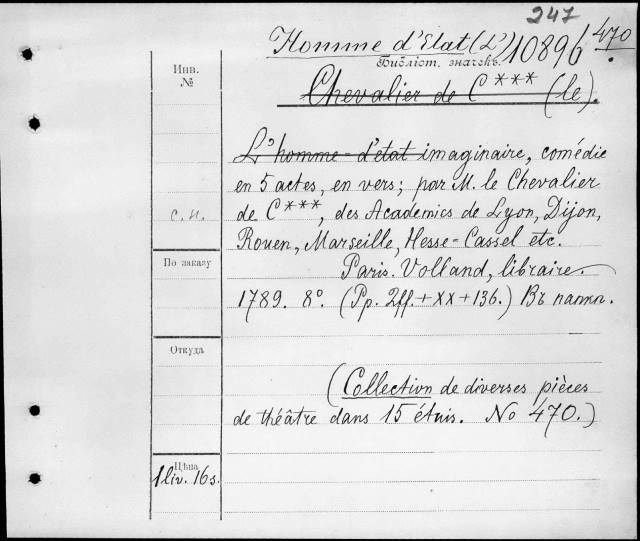 247
Homme d'Etat (L') 10896/470.
Библіот. значекъ.
Chevalier de C*** (le).
Инв.
№
L'homme-d'état imaginaire, comédie
en 5 actes, en vers; par M. le Chevalier
с. н. de C***, des Academies de Lyon, Dijon,
Rouen, Marseille, Hesse-Cassel etc.
По заказу
Paris. Volland, libraire.
1789. 8°. (Pp. 2ff.+XX+136.) Въ папкѣ.
Откуда
(Collection de diverses pièces
de théâtre dans 15 étuis. No 470.)
Цѣна
1 liv. 16 s.